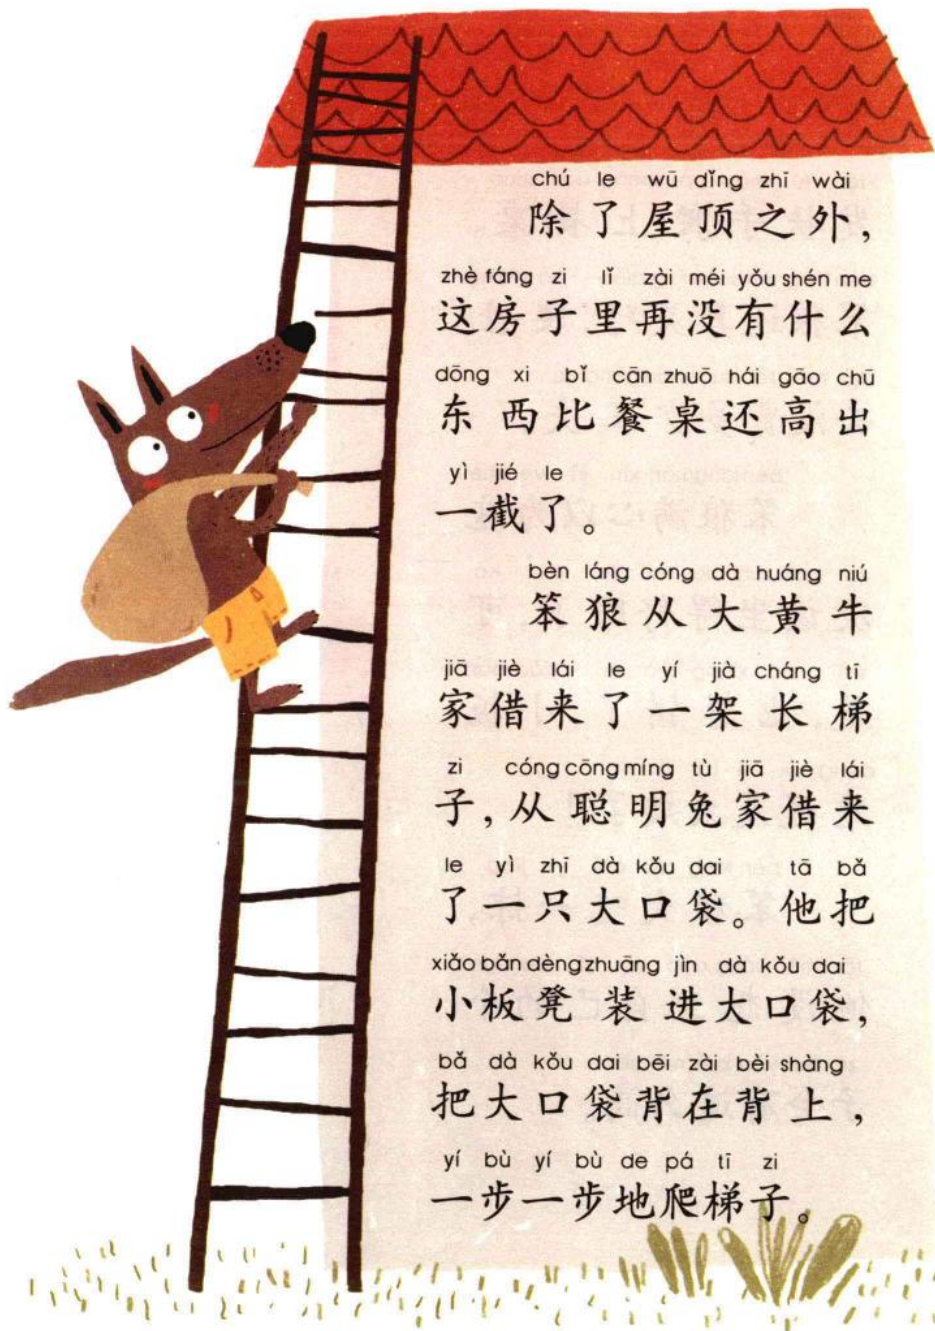 chú le wū dǐng zhī wài
除了屋顶之外,
zhè fáng zi lǐ zài méi yǒu shén me
这房子里再没有什么
dōng xi bǐ cān zhuō hái gāo chū
东西比餐桌还高出
yì jié le
一截了。
bèn láng cóng dà huáng niú
笨狼从大黄牛
jiā jiè lái le yí jià cháng tī
家借来了一架长梯
zi cóng cōng míng tù jiā jiè lái
子,从聪明兔家借来
le yì zhī dà kǒu dai tā bǎ
了一只大口袋。他把
xiǎo bǎn dèng zhuāng jìn dà kǒu dai
小板凳装进大口袋,
bǎ dà kǒu dai bēi zài bèi shàng
把大口袋背在背上,
yí bù yí bù de pá tī zi
一步一步地爬梯子。